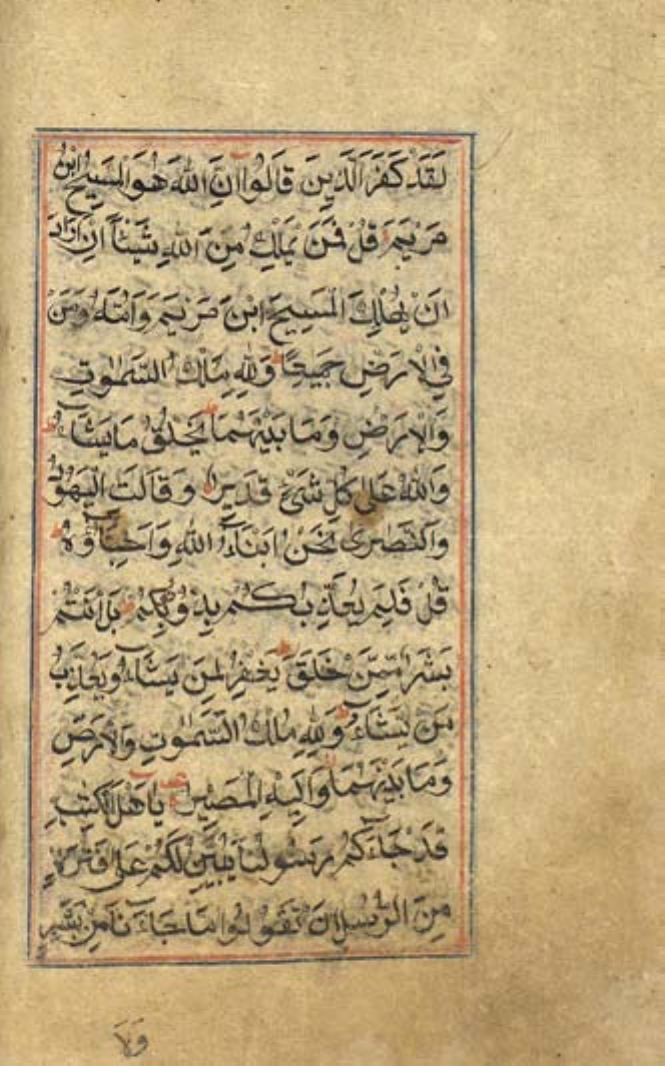 لَقَدْ كَفَرَ الَّذِينَ قَالُوا اِنَّ اللّٰهَ هُوَ الْمَسِيحُ ابْنُ
مَرْيَمَ قُلْ فَمَنْ يَمْلِكُ مِنَ اللّٰهِ شَيْئًا اِنْ اَرَادَ
اَنْ يُهْلِكَ الْمَسِيحَ ابْنَ مَرْيَمَ وَاُمَّهُ وَمَنْ
فِي الْاَرْضِ جَمِيعًا وَلِلّٰهِ مُلْكُ السَّمٰوٰتِ
وَالْاَرْضِ وَمَا بَيْنَهُمَا يَخْلُقُ مَا يَشَآءُ
وَاللّٰهُ عَلٰى كُلِّ شَيْءٍ قَدِيرٌ وَقَالَتِ الْيَهُودُ
وَالنَّصٰرٰى نَحْنُ اَبْنَآءُ اللّٰهِ وَاَحِبَّآؤُهُ
قُلْ فَلِمَ يُعَذِّبُكُمْ بِذُنُوبِكُمْ بَلْ اَنْتُمْ
بَشَرٌ مِمَّنْ خَلَقَ يَغْفِرُ لِمَنْ يَشَآءُ وَيُعَذِّبُ
مَنْ يَشَآءُ وَلِلّٰهِ مُلْكُ السَّمٰوٰتِ وَالْاَرْضِ
وَمَا بَيْنَهُمَا وَاِلَيْهِ الْمَصِيرُ يَآ اَهْلَ الْكِتٰبِ
قَدْ جَآءَكُمْ رَسُولُنَا يُبَيِّنُ لَكُمْ عَلٰى فَتْرَةٍ
مِنَ الرُّسُلِ اَنْ تَقُولُوا مَا جَآءَنَا مِنْ بَشِيرٍ
وَلَا